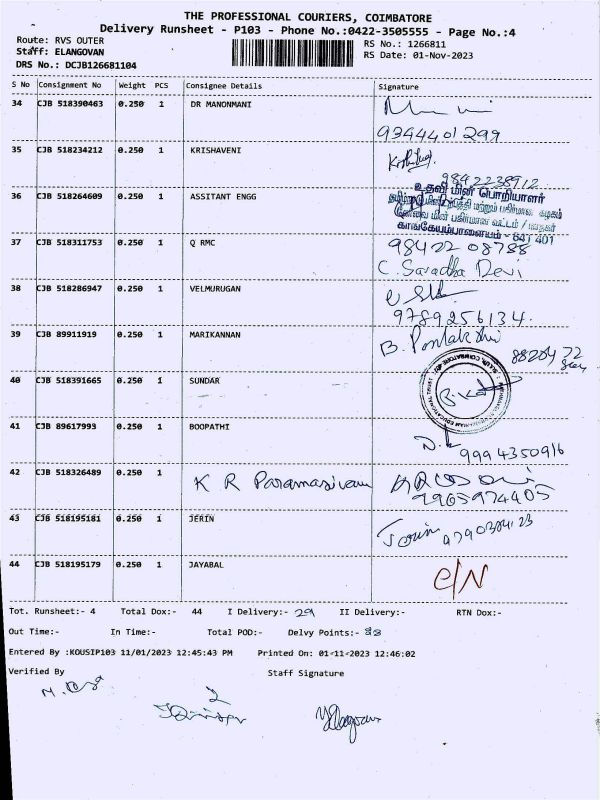 THE PROFESSIONAL COURIERS, COIMBATORE
Delivery Runsheet - P103 - Phone No.:0422-3505555 - Page No.:4
Route: RVS OUTER
RS No.: 1266811
Staff: ELANGOVAN
RS Date: 01-Nov-2023
DRS No.: DCJB126681104
S No Consignment No Weight PCS Consignee Details Signature
34 CJB 518390463 0.250 1 DR MANONMANI
9344401299
35 CJB 518234212 0.250 1 KRISHAVENI
9842238912
36 CJB 518264609 0.250 1 ASSITANT ENGG
உதவி மின் பொறியாளர்
தமிழ்நாடு மின் உற்பத்தி மற்றும் பகிர்மான கழகம்
கோவை மின் பகிர்மான வட்டம் /
காங்கேயம்பாளையம் - 641 401
37 CJB 518311753 0.250 1 Q RMC
98422 08788
C. Saradha Devi
38 CJB 518286947 0.250 1 VELMURUGAN
9789256134.
39 CJB 89911919 0.250 1 MARIKANNAN
B.
40 CJB 518391665 0.250 1 SUNDAR
41 CJB 89617993 0.250 1 BOOPATHI
9994350916
42 CJB 518326489 0.250 1 K R Paramasivam
9965974405
43 CJB 518195181 0.250 1 JERIN
Jerin
44 CJB 518195179 0.250 1 JAYABAL
C/N
Tot. Runsheet:- 4 Total Dox:- 44 I Delivery:- 29 II Delivery:- RTN Dox:-
Out Time:- In Time:- Total POD:- Delvy Points:-
Entered By :KOUSIP103 11/01/2023 12:45:43 PM Printed On: 01-11-2023 12:46:02
Verified By Staff Signature